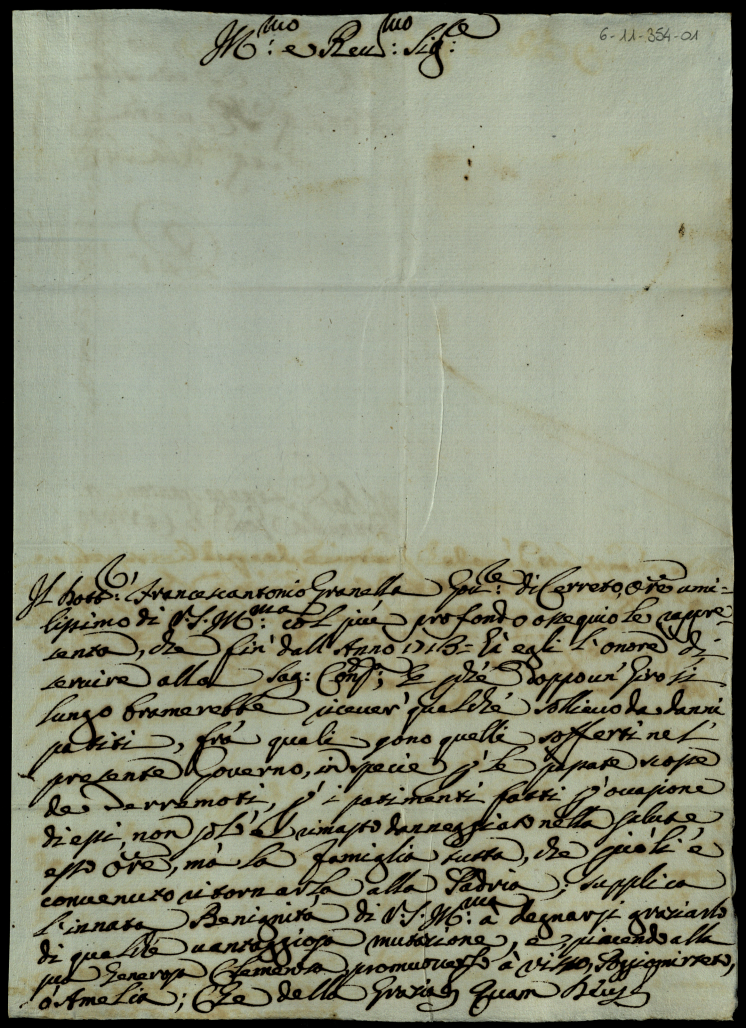 6-11-354-01
Ill.mo e Reu.mo Sig.re
Il Dott.r Francescantonio Granella Gou.re di Cerreto, Ore umi=
lissimo di V.S. Ill.ma col più profondo ossequio le rappre=
senta, che fin' dall'Anno 1713= hà egli l'onore di
seruire alla Sag: Cons.; E perche doppo un' giro sì
lungo bramerebbe riceuer' qualche sollieuo da danni
patiti, frà quali sono quelli sofferti nel
presente Gouerno, in specie p' le passate scosse
de Terremoti, p' i patimenti fatti p' occasione
di essi, non solo è rimasto danneggiato nella salute
esso Ore, mà la famiglia tutta, che più li è
conuenuto ritornarla alla Padria; supplica
l'innata Benignità di V.S. Ill.ma à degnarsi graziarlo
di qualche uantaggiosa mutazione, e piacendo alla
sua Generosa Clemenza promouerlo à Visso, Poggiomirteto,
o Amelia; Che della Grazia Quam Deus